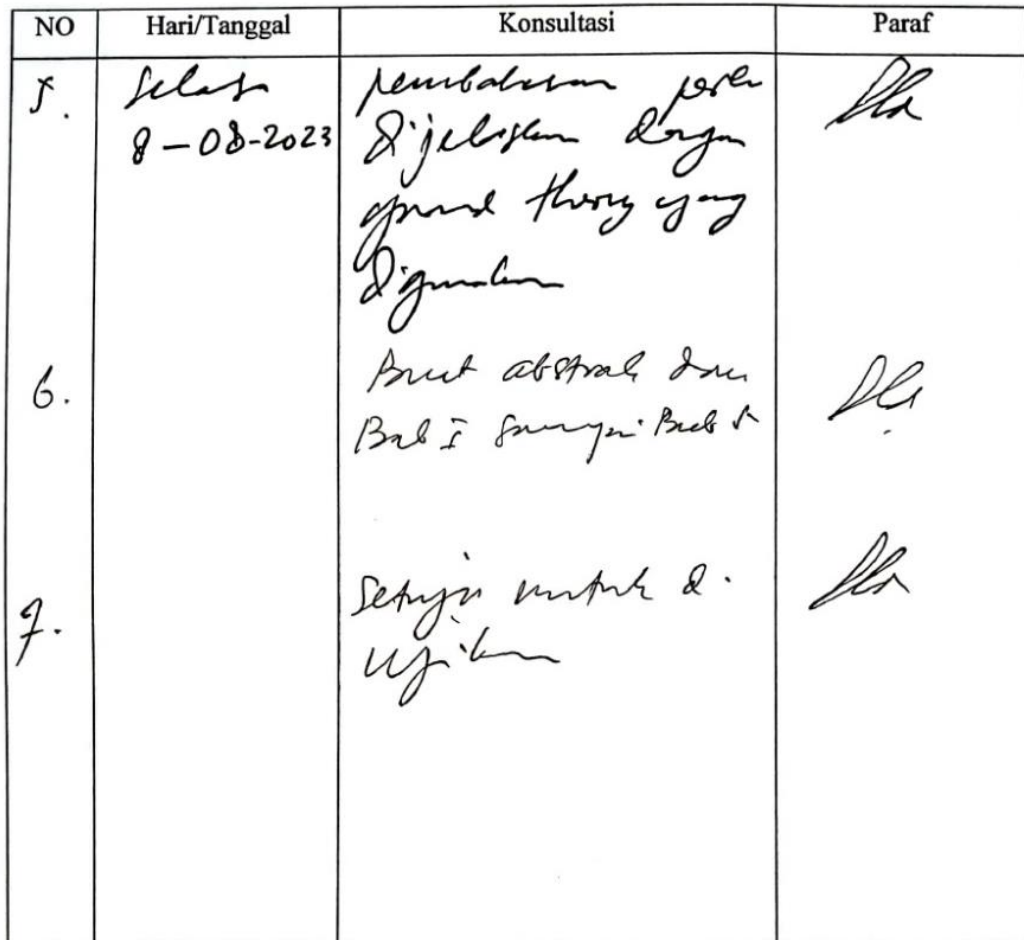 NO Hari/Tanggal Konsultasi Paraf
5. Selasa pembahasan perlu
8-08-2023 dijelaskan dengan
grand theory yang
digunakan
6. Buat abstrak dan
Bab I sampai Bab V
7. Setuju untuk di
ujikan